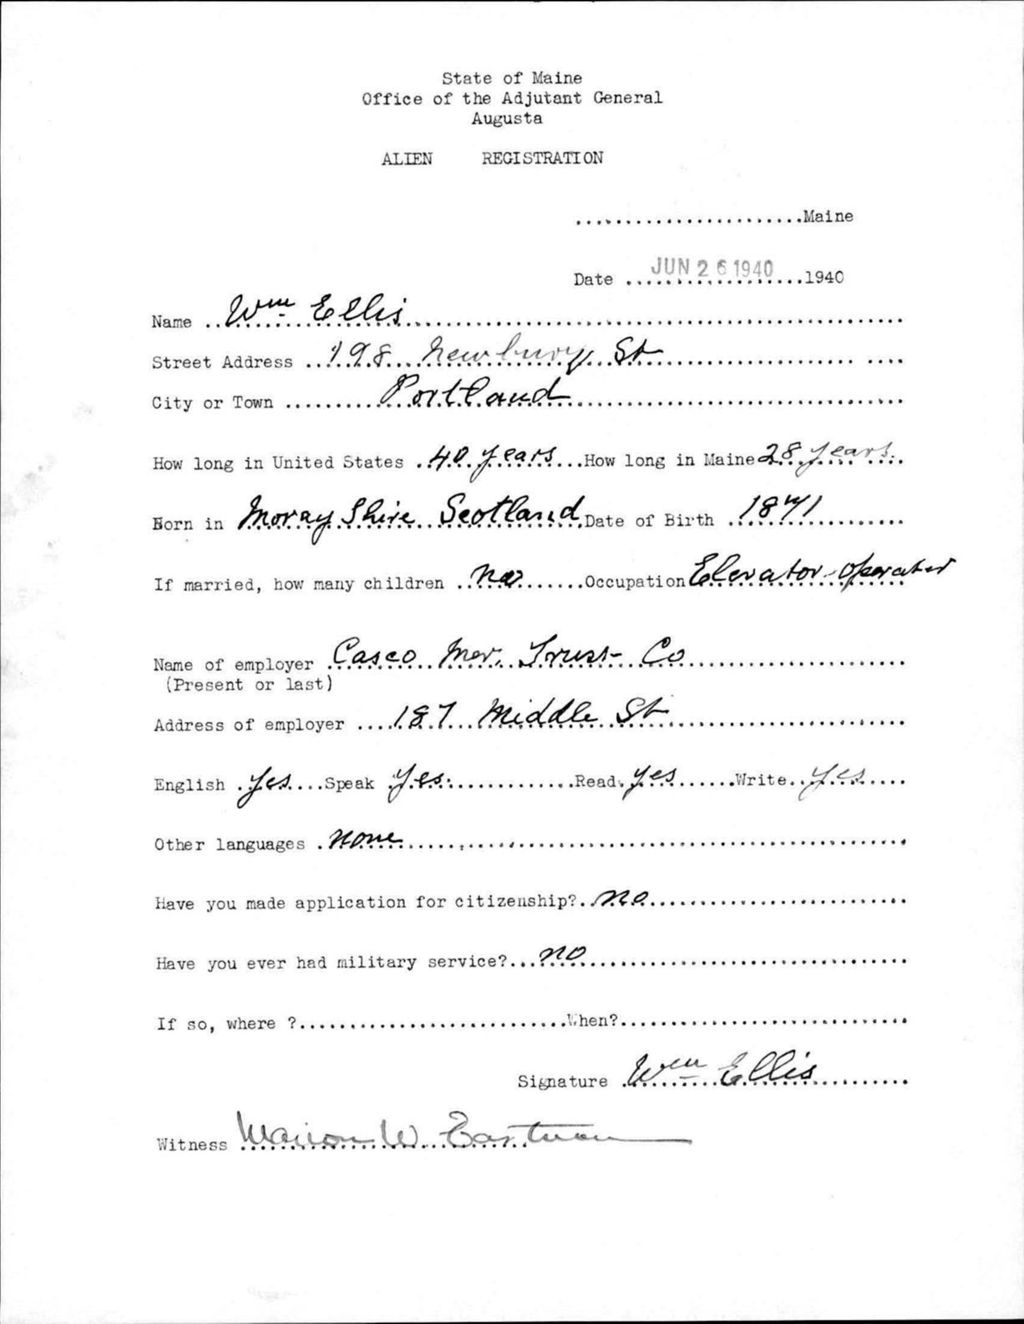 State of Maine
Office of the Adjutant General
Augusta
ALIEN REGISTRATION
.......................Maine
Date ...JUN 26 1940...1940
Name ..Wm Ellis..................
Street Address ..198 Newbury St..................
City or Town ..........Portland..................
How long in United States .40 years...How long in Maine 28 years..
Born in Moray Shire Scotland Date of Birth .1871..........
If married, how many children .no.......Occupation Elevator-operator
Name of employer .Casco Mer. Trust Co..................
(Present or last)
Address of employer ....187 Middle St..................
English .Yes....Speak Yes.............Read.yes.......Write..yes....
Other languages .none..................
Have you made application for citizenship?..no..................
Have you ever had military service?...no..................
If so, where ?...........................When?.............................
Signature .Wm Ellis..........
Witness Marion W. Eastman